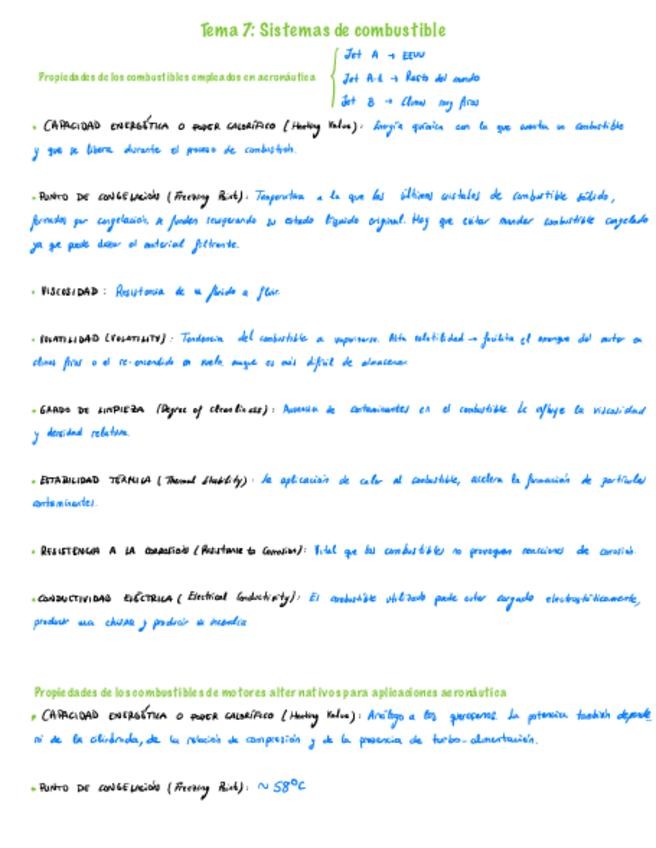 Tema 7: Sistemas de combustible
Jet A → EEUU
Propiedades de los combustibles empleados en aeronáutica
Jet A-1 → Resto del mundo
Jet B → Climas muy fríos
• CAPACIDAD ENERGÉTICA O PODER CALORÍFICO (Heating Value): Energía química con la que cuenta un combustible
y que se libera durante el proceso de combustión.
• PUNTO DE CONGELACIÓN (Freezing Point): Temperatura a la que los últimos cristales de combustible sólido,
formados por congelación, se funden recuperando su estado líquido original. Hay que evitar mandar combustible congelado
ya que puede dañar el material filtrante.
• VISCOSIDAD: Resistencia de un fluido a fluir.
• VOLATILIDAD (VOLATILITY): Tendencia del combustible a vaporizarse. Alta volatilidad → facilita el arranque del motor en
climas fríos o el re-encendido en vuelo aunque es más difícil de almacenar.
• GRADO DE LIMPIEZA (Degree of cleanliness): Ausencia de contaminantes en el combustible. Le influye la viscosidad
y densidad relativa.
• ESTABILIDAD TÉRMICA (Thermal Stability): La aplicación de calor al combustible, acelera la formación de partículas
contaminantes.
• RESISTENCIA A LA CORROSIÓN (Resistance to Corrosion): Vital que los combustibles no provoquen reacciones de corrosión.
• CONDUCTIVIDAD ELÉCTRICA (Electrical Conductivity): El combustible utilizado puede estar cargado electrostáticamente,
producir una chispa y producir un incendio
Propiedades de los combustibles de motores alternativos para aplicaciones aeronáutica
• CAPACIDAD ENERGÉTICA O PODER CALORÍFICO (Heating Value): Análogo a los querosenos. La potencia también depende
de la cilindrada, de la relación de compresión y de la presencia de turbo-alimentación.
• PUNTO DE CONGELACIÓN (Freezing Point): ~ 58°C